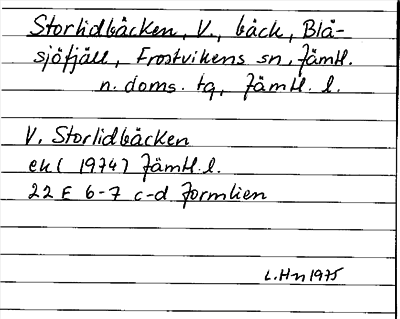 Storlidbäcken, V., bäck, Blå-
sjöfjäll, Frostvikens sn, Jämtl.
n. doms. tg, Jämtl. l.
V. Storlidbäcken
ek ( 1974) Jämtl. l.
22 E 6-7 c-d Jormlien
L.Hn 1975